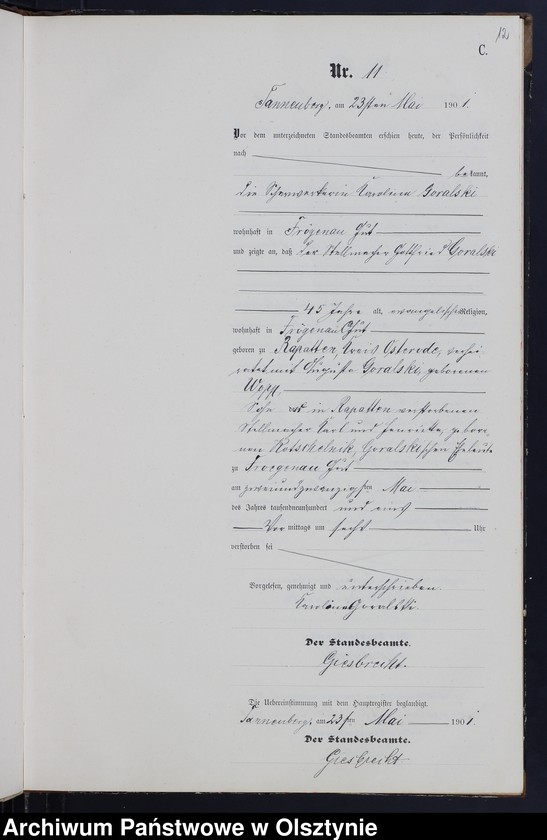 12
C.
Nr. 11
Tannenberg, am 23sten Mai 1901.
Vor dem unterzeichneten Standesbeamten erschien heute, der Persönlichkeit
nach
bekannt,
die Scharwerkerin Karoline Goralski
wohnhaft in Frögenau Gut
und zeigte an, daß der Stellmacher Gottfried Goralski
45 Jahre alt, evangelischer Religion,
wohnhaft in Frögenau Gut
geboren zu Rapatten, Kreis Osterode, verhei-
ratet mit Auguste Goralski, geborenen
Sohn des in Rapatten verstorbenen
Stellmacher Karl und Henriette, gebore-
nen Kotschelnik, Goralskischen Eheleute
zu Froegenau Gut
am zweiundzwanzigsten Mai
des Jahres tausendneunhundert und eins
Vormittags um sechs Uhr
verstorben sei
Vorgelesen, genehmigt und unterschrieben
Karoline Goralski.
Der Standesbeamte.
Giesbrecht.
Die Uebereinstimmung mit dem Hauptregister beglaubigt.
Tannenberg, am 23sten Mai 1901.
Der Standesbeamte.
Giesbrecht
Archiwum Państwowe w Olsztynie